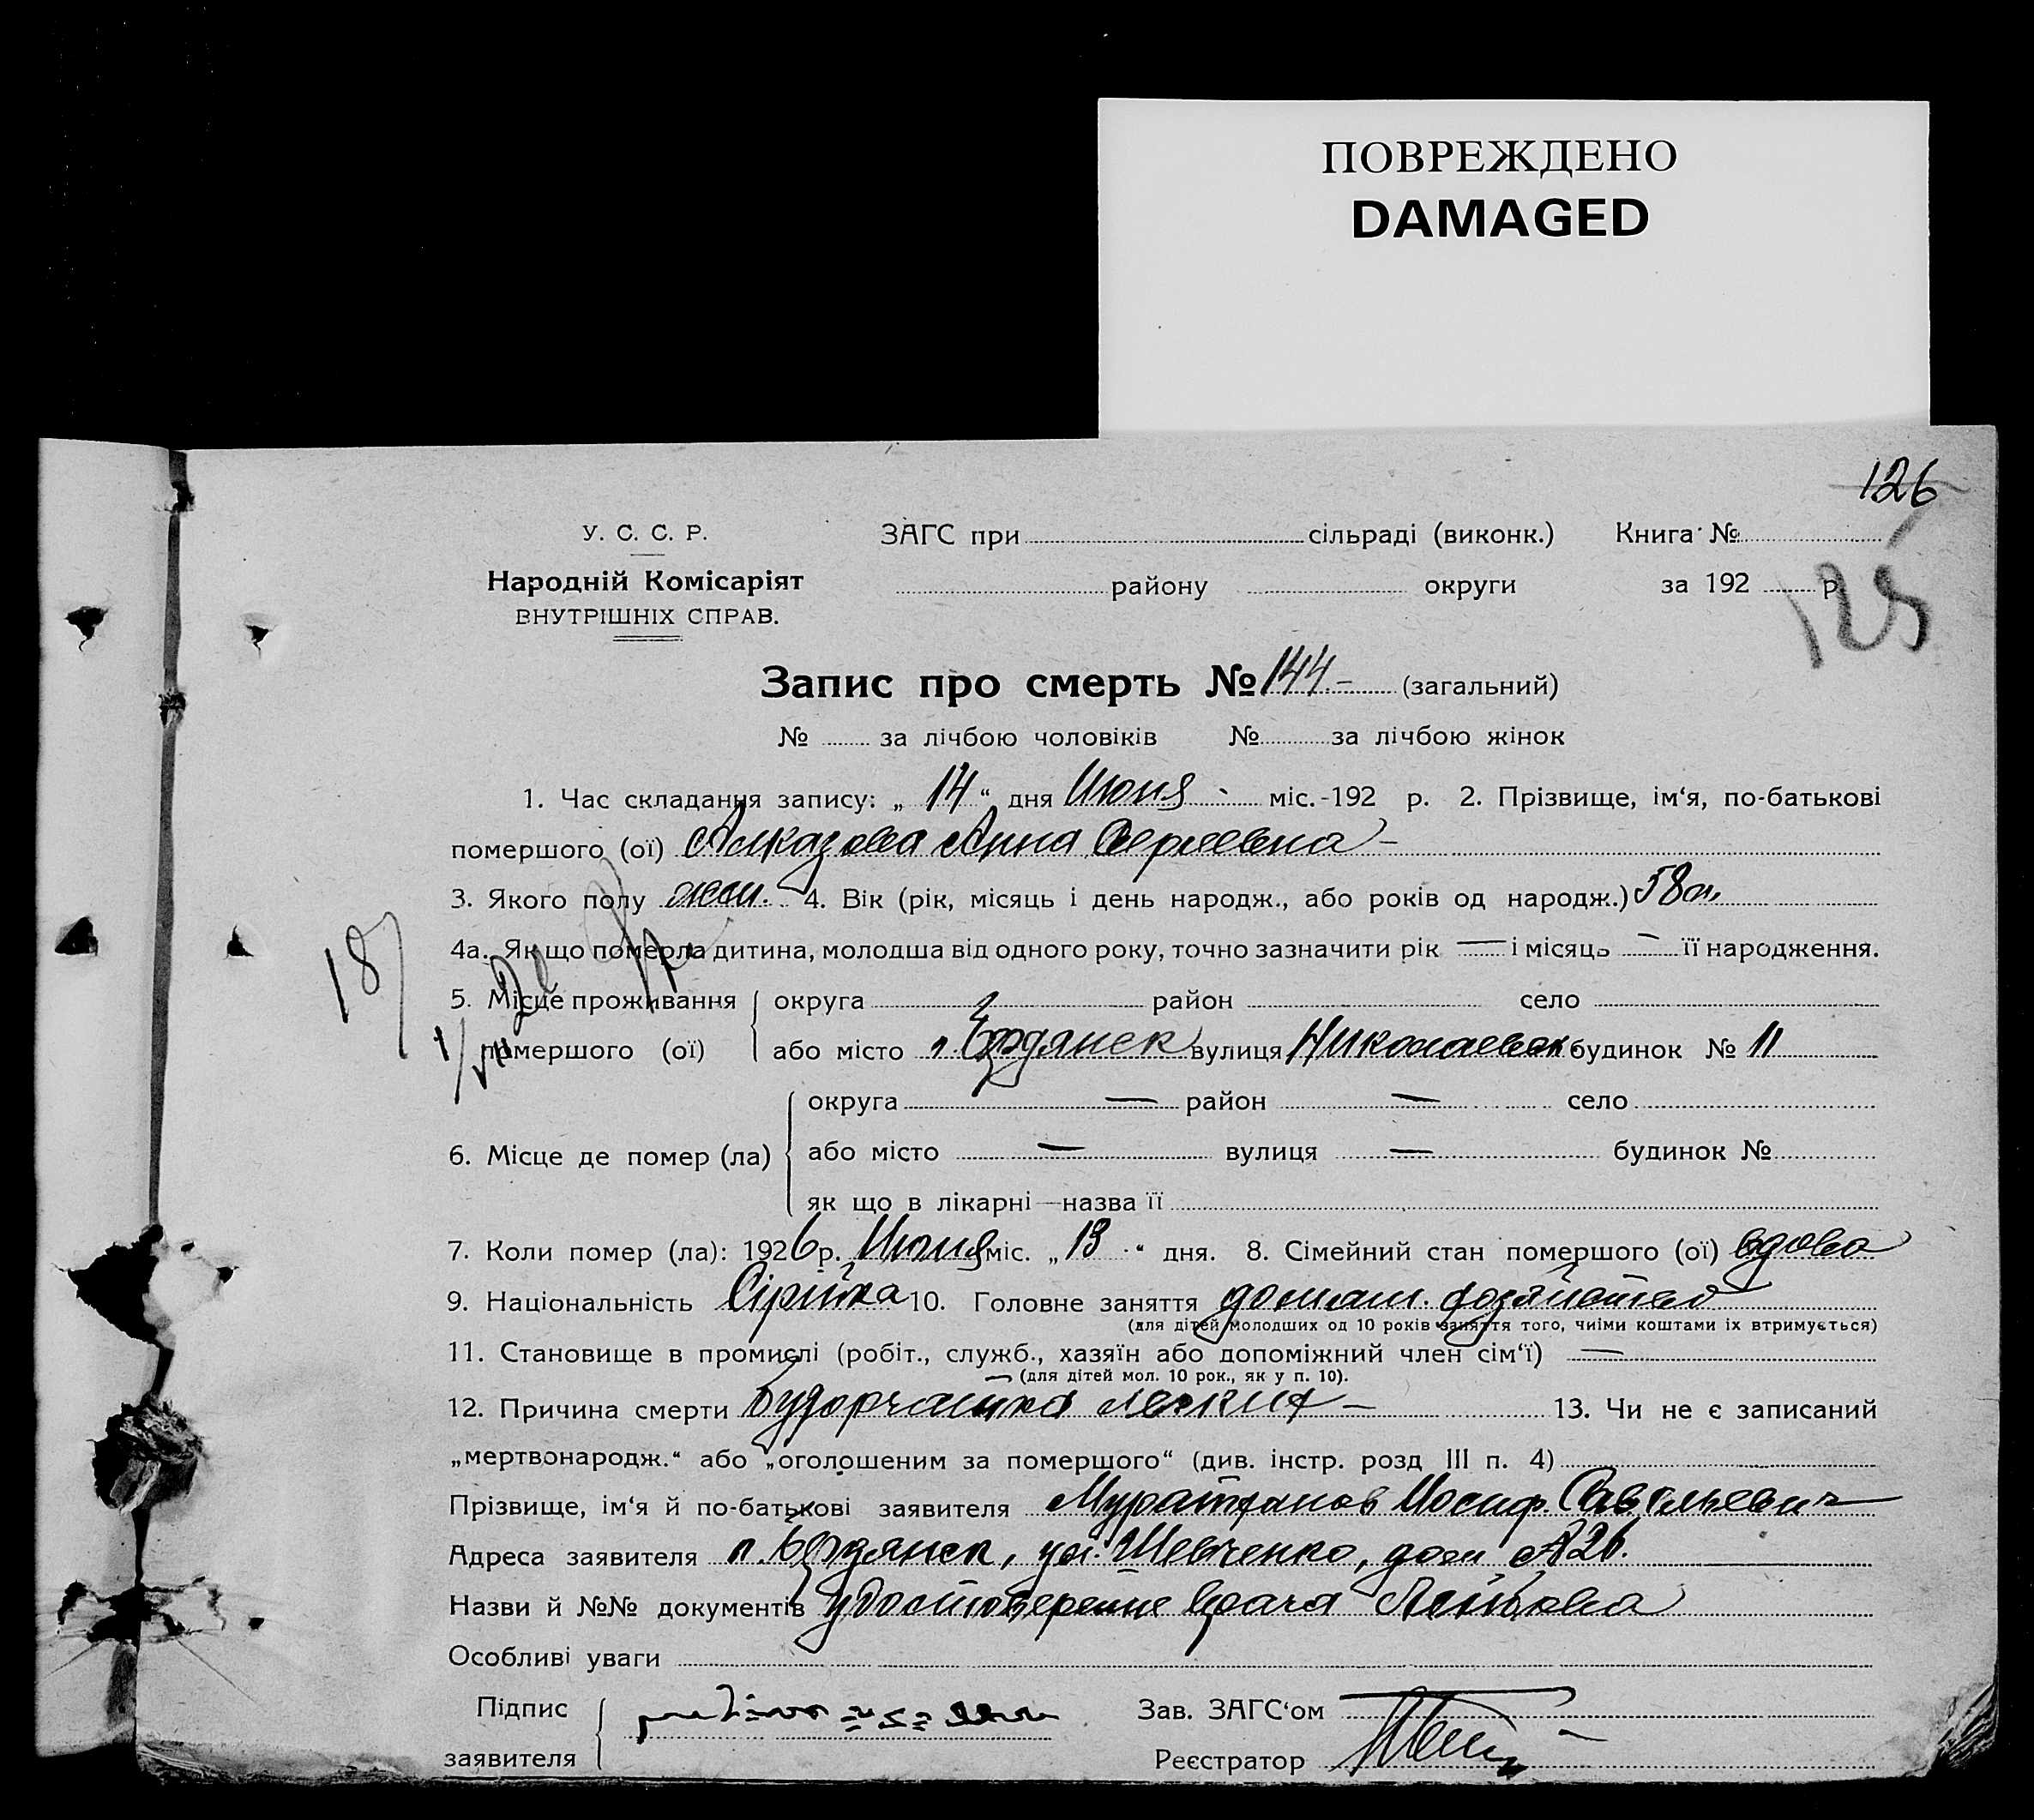 ПОВРЕЖДЕНО
DAMAGED
126
У. С. С. Р.
ЗАГС при сільраді (виконк.) Книга №
Народній Комісаріят
району округи за 192 р.
125
ВНУТРІШНІХ СПРАВ.
Запис про смерть № 144.– (загальний)
№ за лічбою чоловіків № за лічбою жінок
1. Час складання запису: „ 14 “ дня Июня міс.-192 р. 2. Прізвище, ім‘я, по-батькові
помершого (ої) Анна Сергеевна –
3. Якого полу жен. 4. Вік (рік, місяць і день народж., або років од народж.) 58
4а. Як що померла дитина, молодша від одного року, точно зазначити рік — і місяць – її народження.
187
5. Місце проживання округа район село
помершого (ої) або місто Бердянск вулиця будинок № 11
округа — район — село
6. Місце де помер (ла) або місто — вулиця — будинок №
як що в лікарні—назва її
7. Коли помер (ла): 1926 р. Июня міс. „ 13 “ дня. 8. Сімейний стан помершого (ої) вдова
9. Національність Сірійка 10. Головне заняття домаш.
(для дітей молодших од 10 років заняття того, чиїми коштами їх втримується)
11. Становище в промислі (робіт., служб., хазяїн або допоміжний член сім‘ї) —
(для дітей мол. 10 рок., як у п. 10).
12. Причина смерти 13. Чи не є записаний
„мертвонародж.“ або „оголошеним за помершого“ (див. інстр. розд III п. 4)
Прізвище, ім‘я й по-батькові заявителя Муратханов Иосиф
Адреса заявителя Бердянск, ул. Шевченко, дом №26.
Назви й №№ документів врача
Особливі уваги
Підпис Зав. ЗАГС‘ом
заявителя Реєстратор